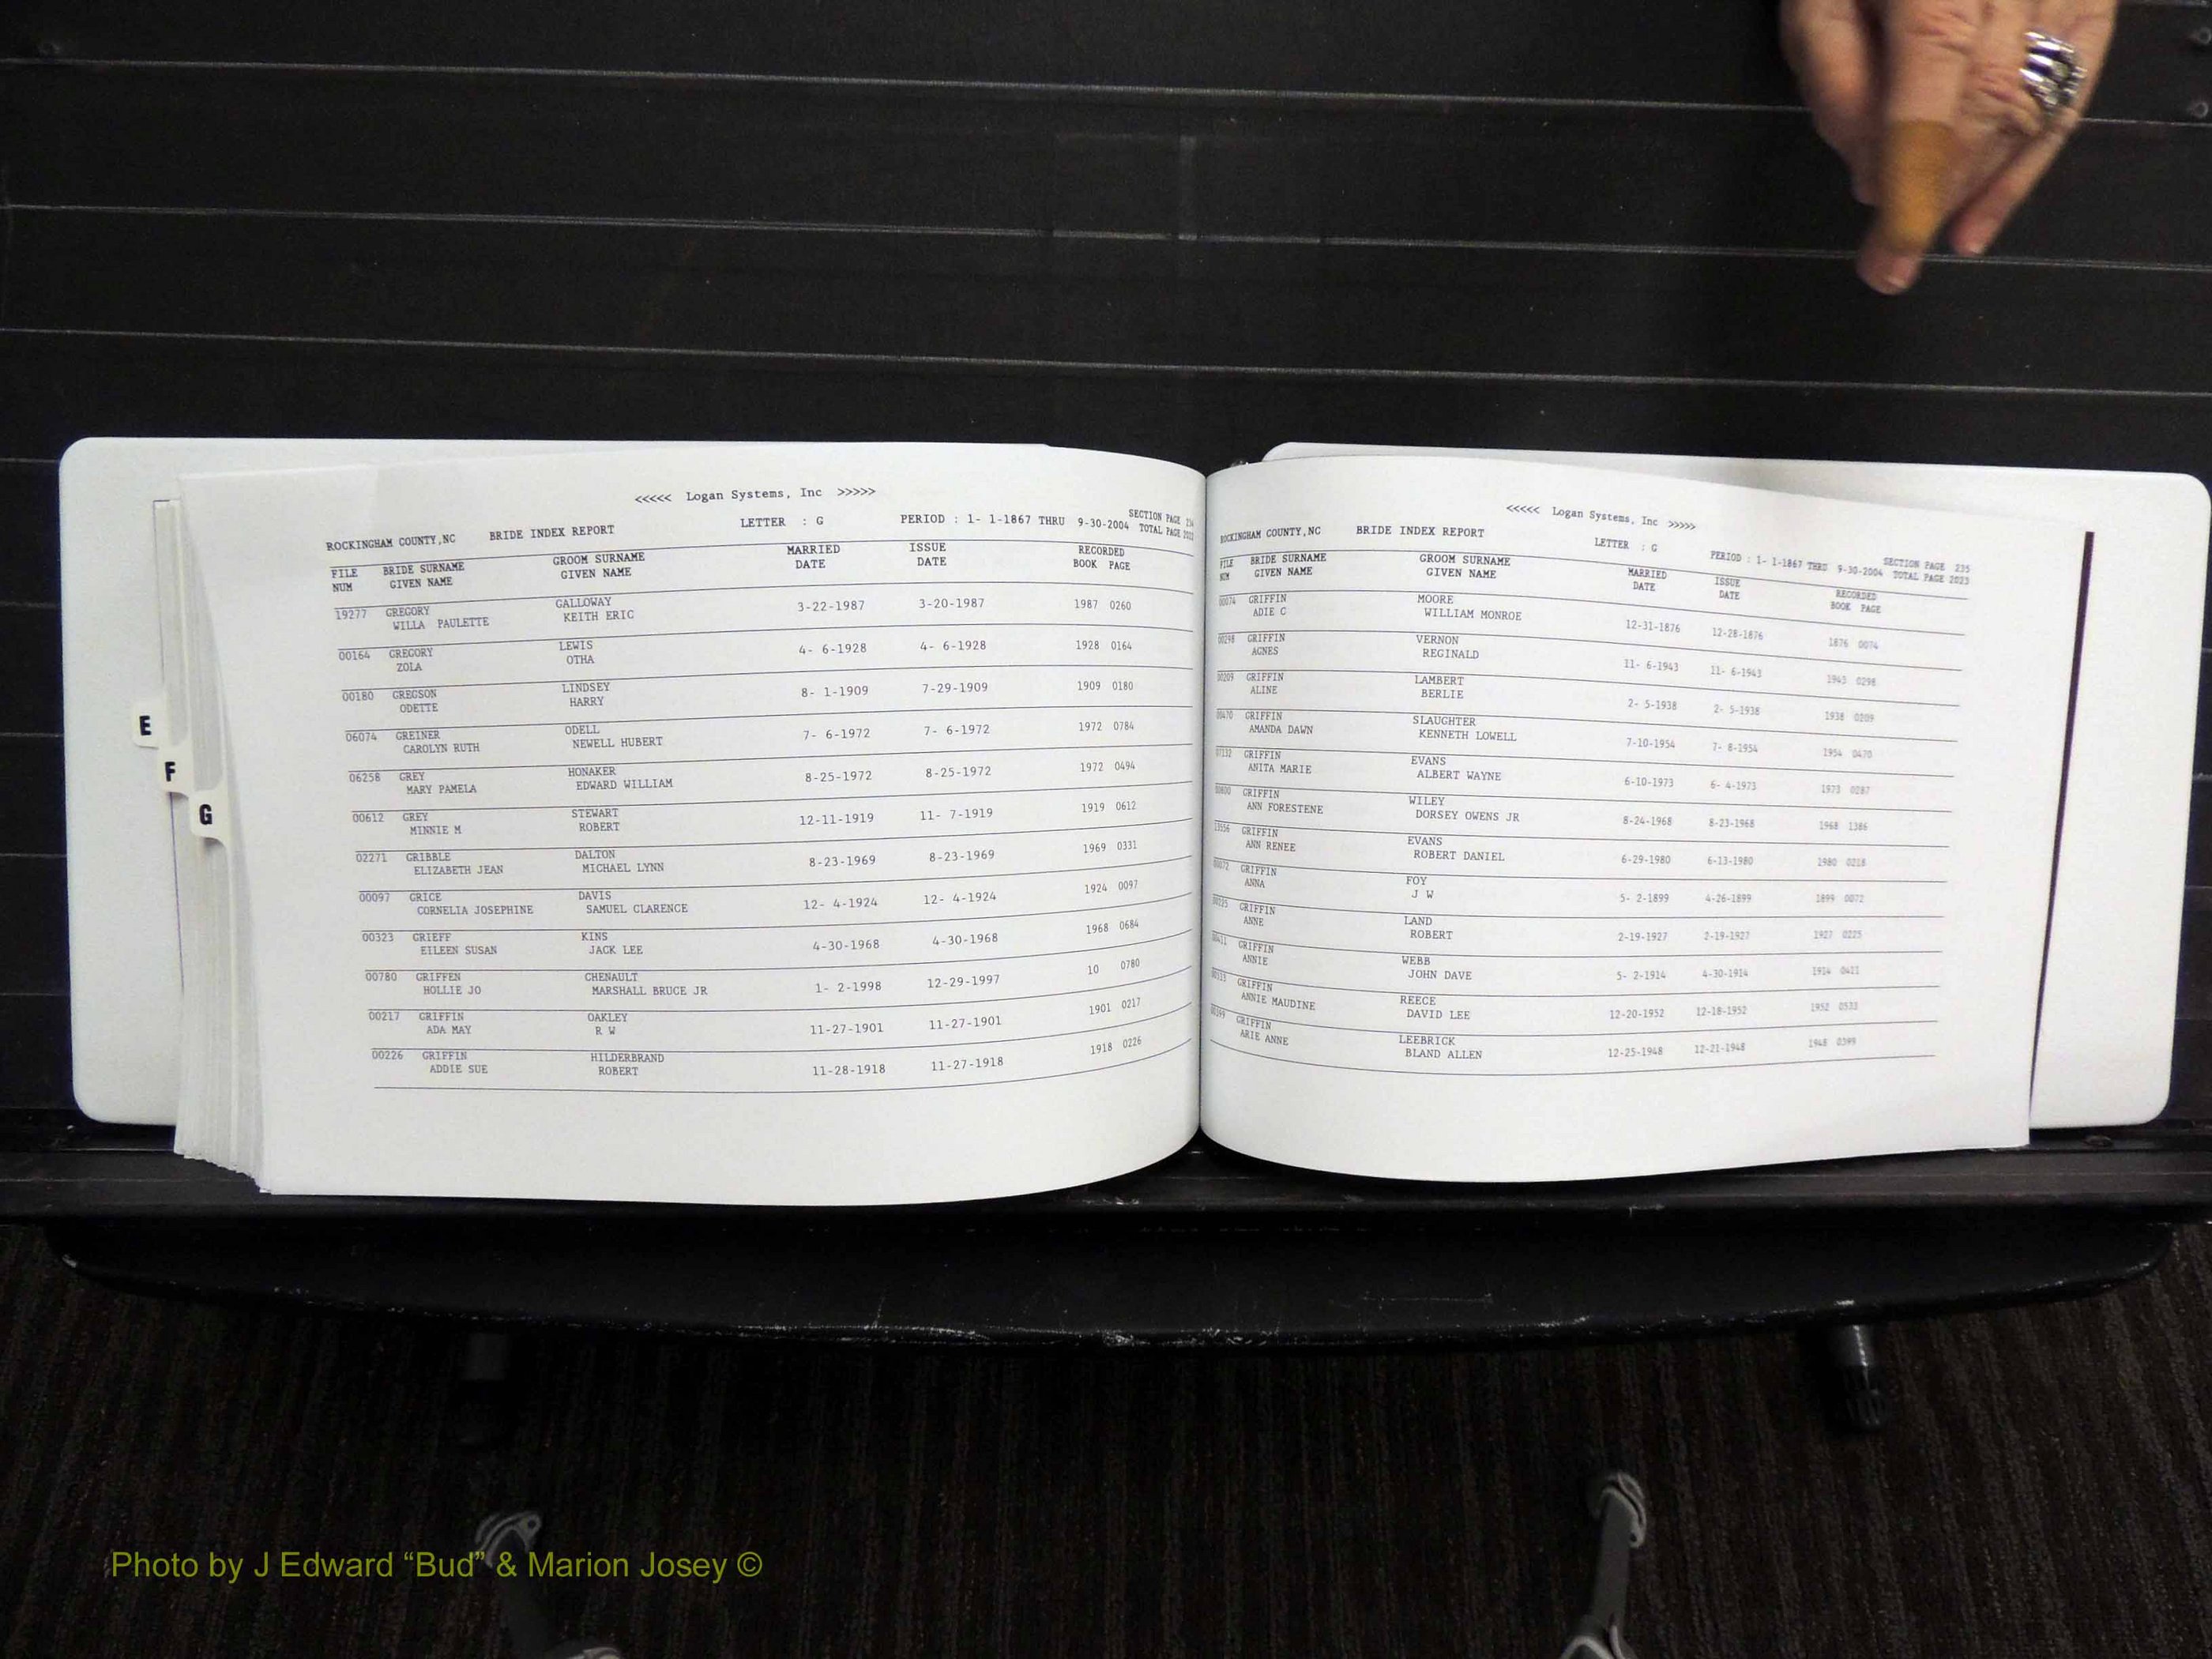 <<<<< Logan Systems, Inc >>>>>
ROCKINGHAM COUNTY,NC BRIDE INDEX REPORT LETTER : G PERIOD : 1- 1-1867 THRU 9-30-2004 SECTION PAGE
TOTAL PAGE
FILE BRIDE SURNAME GROOM SURNAME MARRIED ISSUE RECORDED
NUM GIVEN NAME GIVEN NAME DATE DATE BOOK PAGE
19277 GREGORY GALLOWAY 3-22-1987 3-20-1987 1987 0260
WILLA PAULETTE KEITH ERIC
00164 GREGORY LEWIS 4- 6-1928 4- 6-1928 1928 0164
ZOLA OTHA
00180 GREGSON LINDSEY 8- 1-1909 7-29-1909 1909 0180
ODETTE HARRY
06074 GREINER ODELL 7- 6-1972 7- 6-1972 1972 0784
CAROLYN RUTH NEWELL HUBERT
06258 GREY HONAKER 8-25-1972 8-25-1972 1972 0494
MARY PAMELA EDWARD WILLIAM
00612 GREY STEWART 12-11-1919 11- 7-1919 1919 0612
MINNIE M ROBERT
02271 GRIBBLE DALTON 8-23-1969 8-23-1969 1969 0331
ELIZABETH JEAN MICHAEL LYNN
00097 GRICE DAVIS 12- 4-1924 12- 4-1924 1924 0097
CORNELIA JOSEPHINE SAMUEL CLARENCE
00323 GRIEFF KINS 4-30-1968 4-30-1968 1968 0684
EILEEN SUSAN JACK LEE
00780 GRIFFEN CHENAULT 1- 2-1998 12-29-1997 10 0780
HOLLIE JO MARSHALL BRUCE JR
00217 GRIFFIN OAKLEY 11-27-1901 11-27-1901 1901 0217
ADA MAY R W
00226 GRIFFIN HILDERBRAND 11-28-1918 11-27-1918 1918 0226
ADDIE SUE ROBERT
E
F
G
<<<<< Logan Systems, Inc >>>>>
ROCKINGHAM COUNTY,NC BRIDE INDEX REPORT LETTER : G PERIOD : 1- 1-1867 THRU 9-30-2004 SECTION PAGE 235
TOTAL PAGE 2023
FILE BRIDE SURNAME GROOM SURNAME MARRIED ISSUE RECORDED
NUM GIVEN NAME GIVEN NAME DATE DATE BOOK PAGE
00074 GRIFFIN MOORE 12-31-1876 12-28-1876 1876 0074
ADIE C WILLIAM MONROE
00298 GRIFFIN VERNON 11- 6-1943 11- 6-1943 1943 0298
AGNES REGINALD
00209 GRIFFIN LAMBERT 2- 5-1938 2- 5-1938 1938 0209
ALINE BERLIE
00470 GRIFFIN SLAUGHTER 7-10-1954 7- 8-1954 1954 0470
AMANDA DAWN KENNETH LOWELL
GRIFFIN EVANS 6-10-1973 6- 4-1973 1973 0087
ANITA MARIE ALBERT WAYNE
GRIFFIN WILEY 8-24-1968 8-23-1968 1968 1386
ANN FORESTENE DORSEY OWENS JR
GRIFFIN EVANS 6-29-1980 6-13-1980 1980 0218
ANN RENEE ROBERT DANIEL
00072 GRIFFIN FOY 5- 2-1899 4-26-1899 1899 0072
ANNA J W
00225 GRIFFIN LAND 2-19-1927 2-19-1927 1927 0225
ANNE ROBERT
00411 GRIFFIN WEBB 5- 2-1914 4-30-1914 1914 0411
ANNIE JOHN DAVE
00533 GRIFFIN REECE 12-20-1952 12-18-1952 1952 0533
ANNIE MAUDINE DAVID LEE
00399 GRIFFIN LEEBRICK 12-25-1948 12-21-1948 1948 0399
ARIE ANNE BLAND ALLEN
Photo by J Edward “Bud” & Marion Josey ©